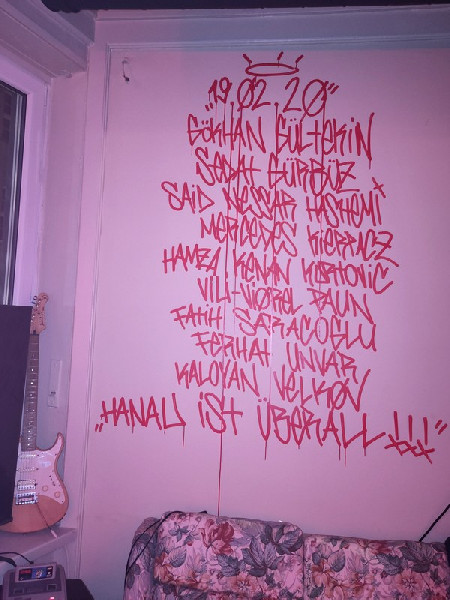 "19.02.20"
GÖKHAN GÜLTEKIN
SEDAT GÜRBÜZ
SAID NESSAR HASHEMI
MERCEDES KIERPACZ
HAMZA KENAN KURTOVIC
VILI-VIOREL PAUN
FATIH SARACOGLU
FERHAT UNVAR
KALOYAN VELKOV
"HANAU IST ÜBERALL!!!"